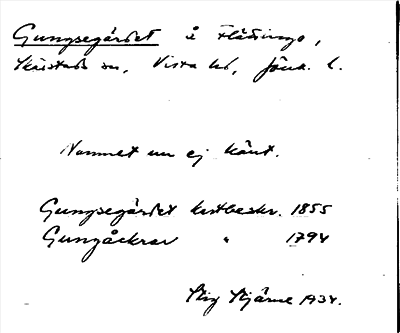 Gungsegärdet å Flättinge,
Skärstads sn, Vista hd, Jönk. l.
Namnet nu ej känt.
Gungsegärdet kartbeskr. 1855
Gungåckrar " 1794
Stig Stjärne 1934.